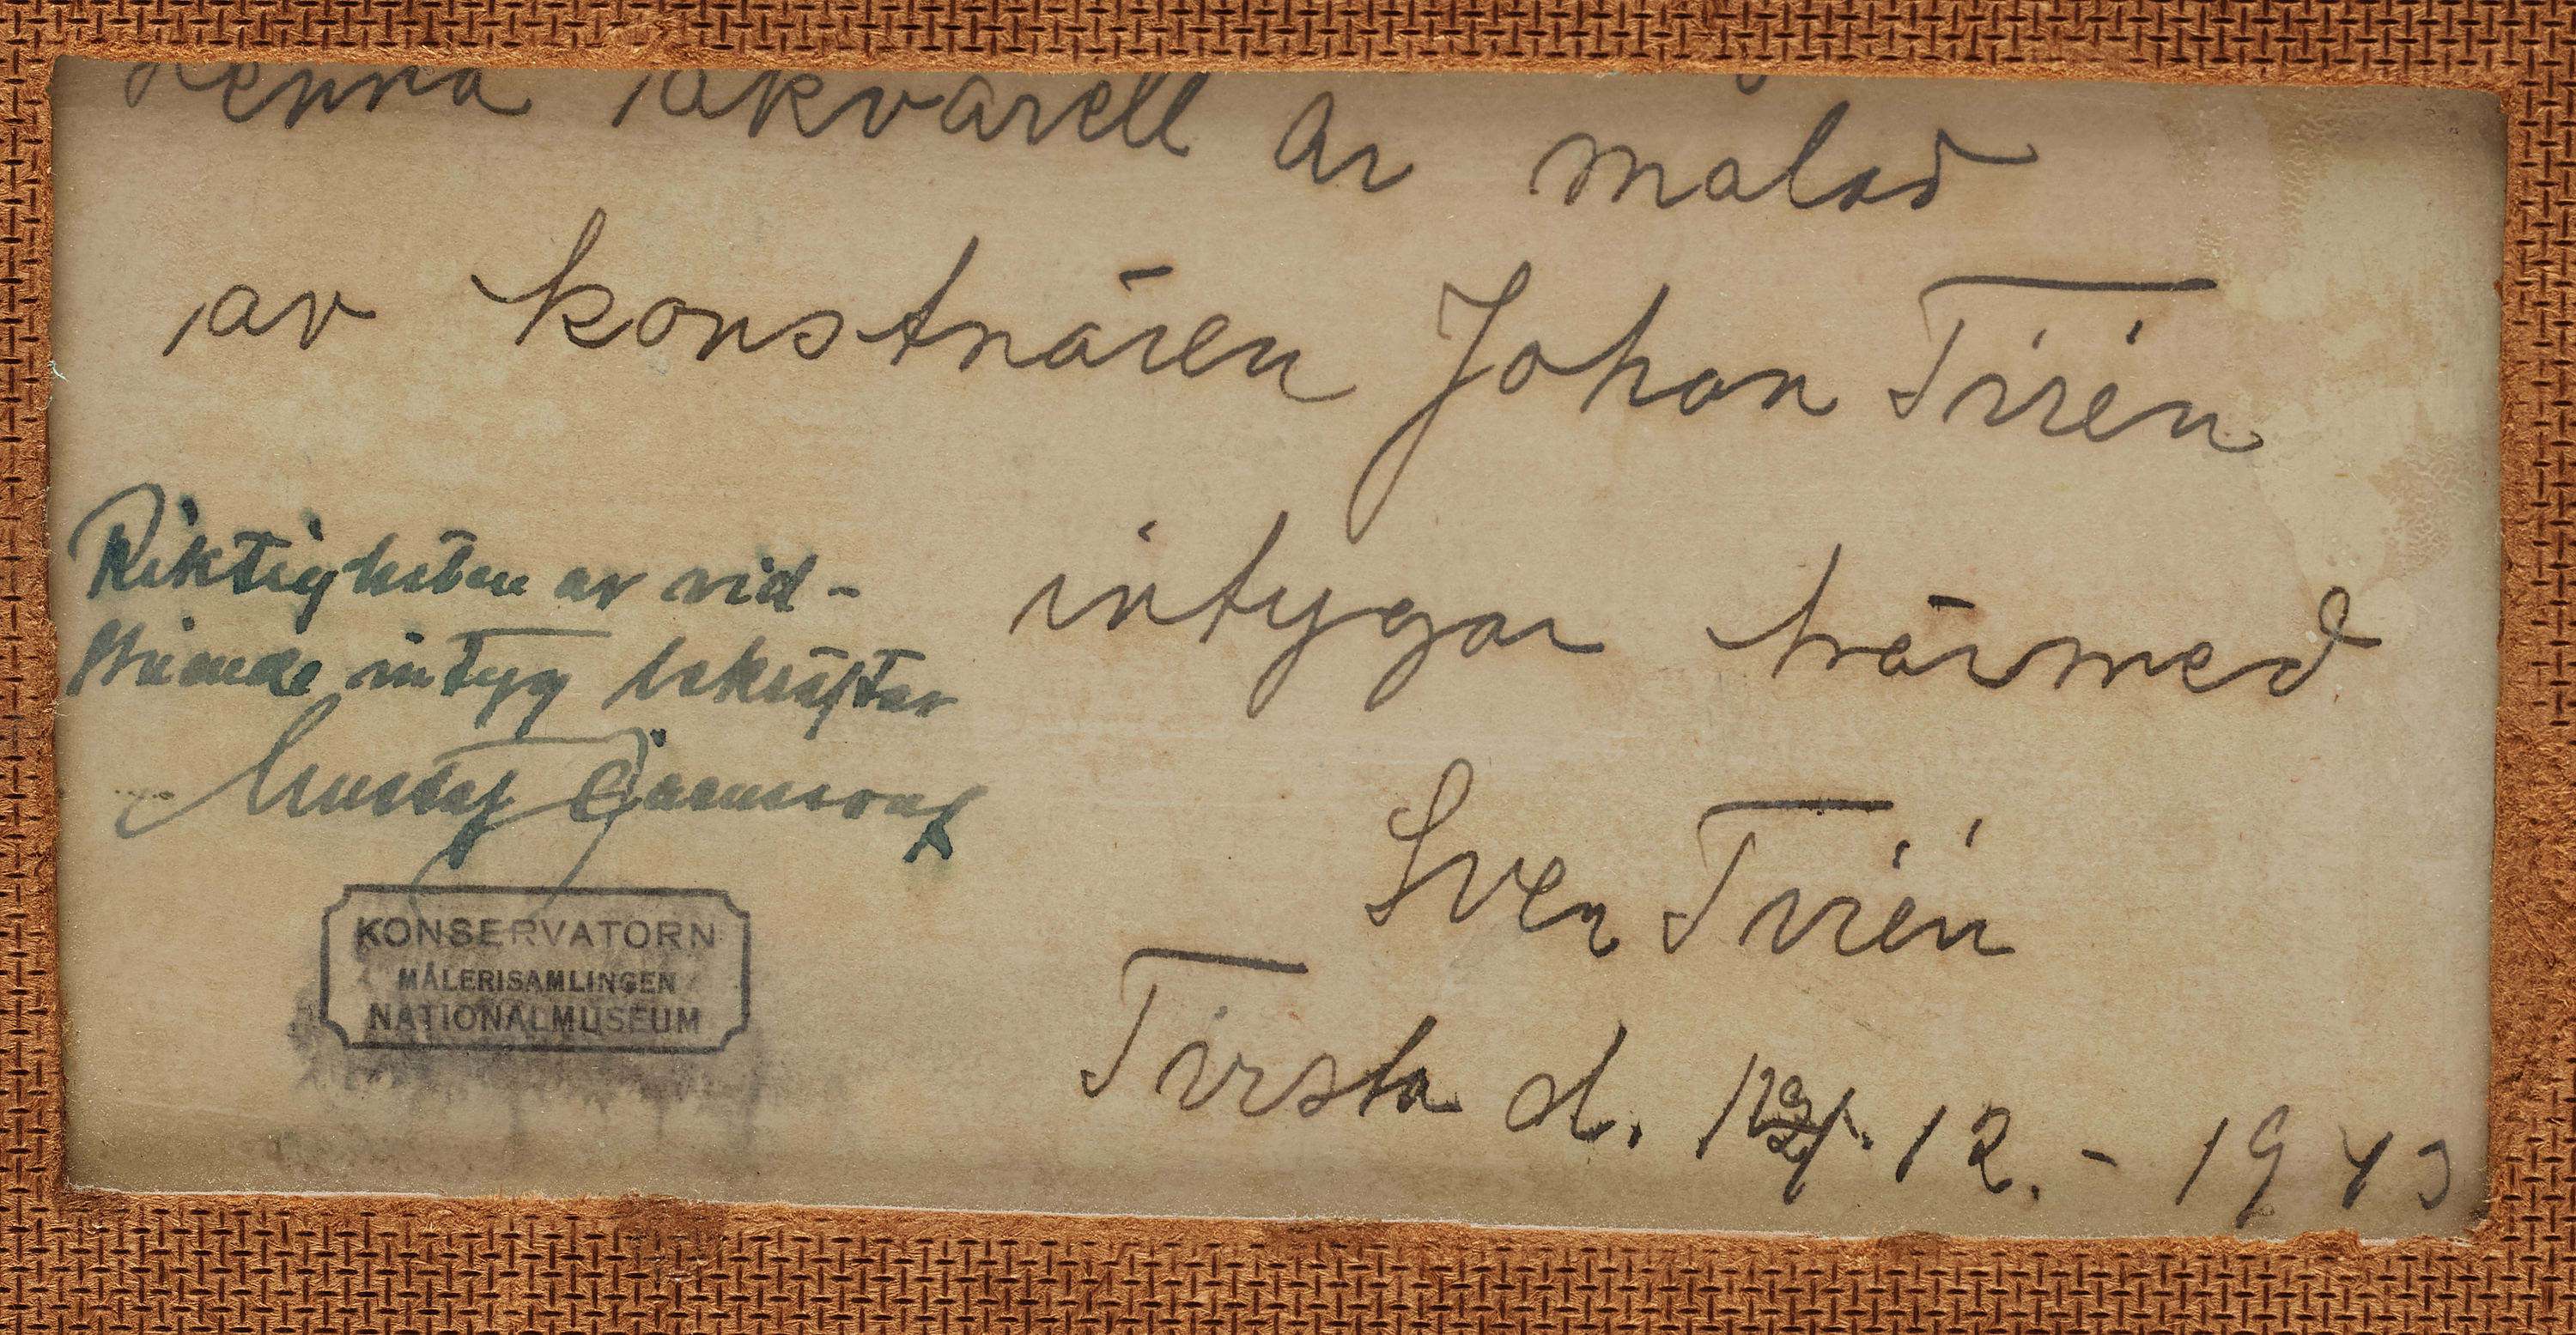 Denna akvarell är målad
av konstnären Johan Tirén
intygar härmed
Sven Tirén
Tirsta d. 12. - 1943
Riktigheten av vid-
stående intyg bekräftar
Gustaf
KONSERVATORN
MÅLERISAMLINGEN
NATIONALMUSEUM